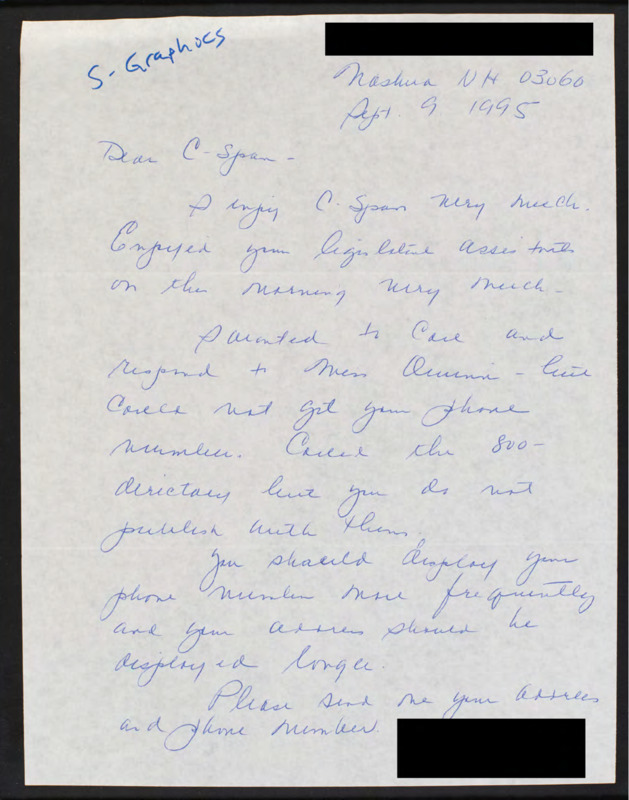 S- Graphics
Nashua NH 03060
Sept. 9 1995
Dear C-Span -
I enjoy C. Span very much.
Enjoyed your legislative assistants
on this morning very much -
I wanted to call and
respond to Miss - but
could not get your phone
number. Called the 800-
directory but you do not
publish with them.
You should display your
phone number more frequently
and your address should be
displayed longer.
Please send me your address
and phone number.